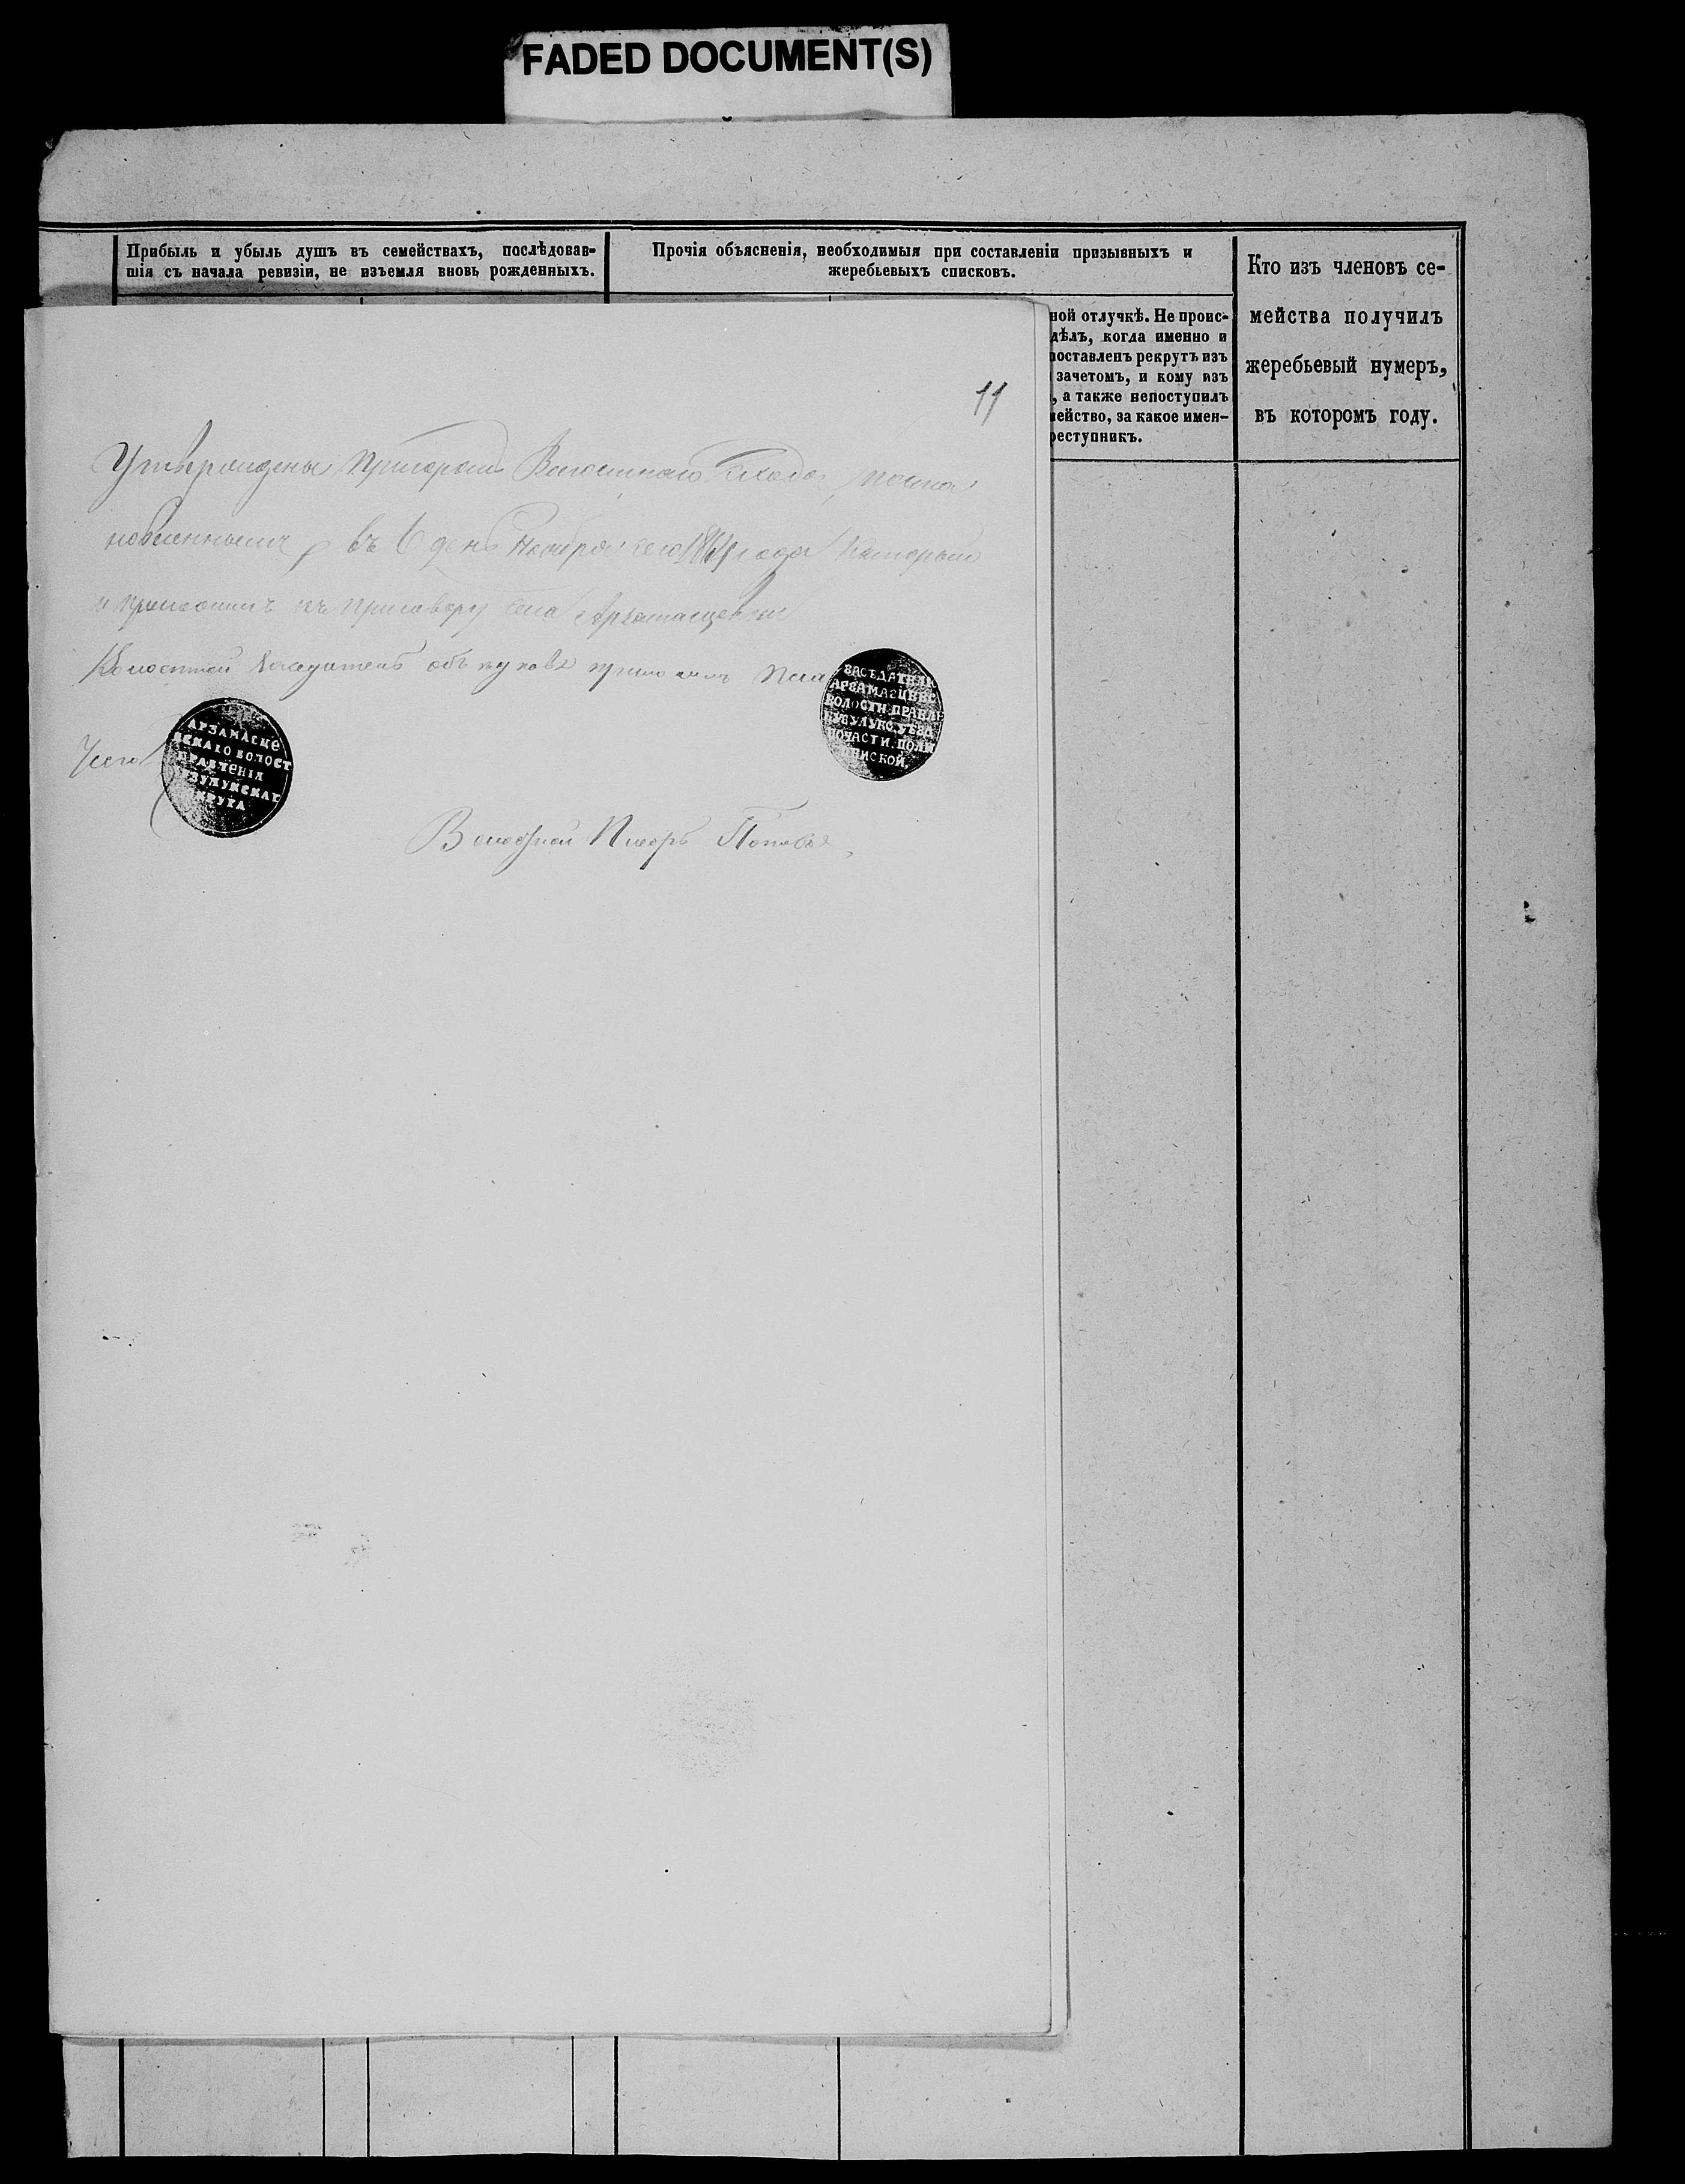 FADED DOCUMENT(S)
Прибыль и убыль душъ въ семействахъ, послѣдовав-
шія съ начала ревизіи, не изъемля вновь рожденныхъ.
Прочія объясненія, необходимыя при составленіи призывныхъ и
жеребьевыхъ списковъ.
Кто изъ членовъ се-
мейства получилъ
жеребьевый нумеръ,
въ которомъ году.
ной отлучкѣ. Не проис-
дѣлъ, когда именно и
поставленъ рекрутъ изъ
зачетомъ, и кому изъ
, а также непоступилъ
мейство, за какое имен-
реступникъ.
11
Утверждены Волостнаго Схода поста
новленнымъ въ 6 день Ноября сего года Которыи
и къ приговору села
Волостной Заседатель
ЗАСѢДАТЕЛЯ
АРЗАМАСЦЕВС
ВОЛОСТИ ПРАВЛЕ
БУЗУЛУКС. УѢЗД
ПОЧАСТИ. ПОЛИ
ЦЕИСКОЙ.
АРЗАМАСЦЕ
ВСКАГО ВОЛОСТ
ПРАВЛЕНІЯ
БУЗУЛУКСКАГ
ОКРУГА
Волостной Писарь Поповъ